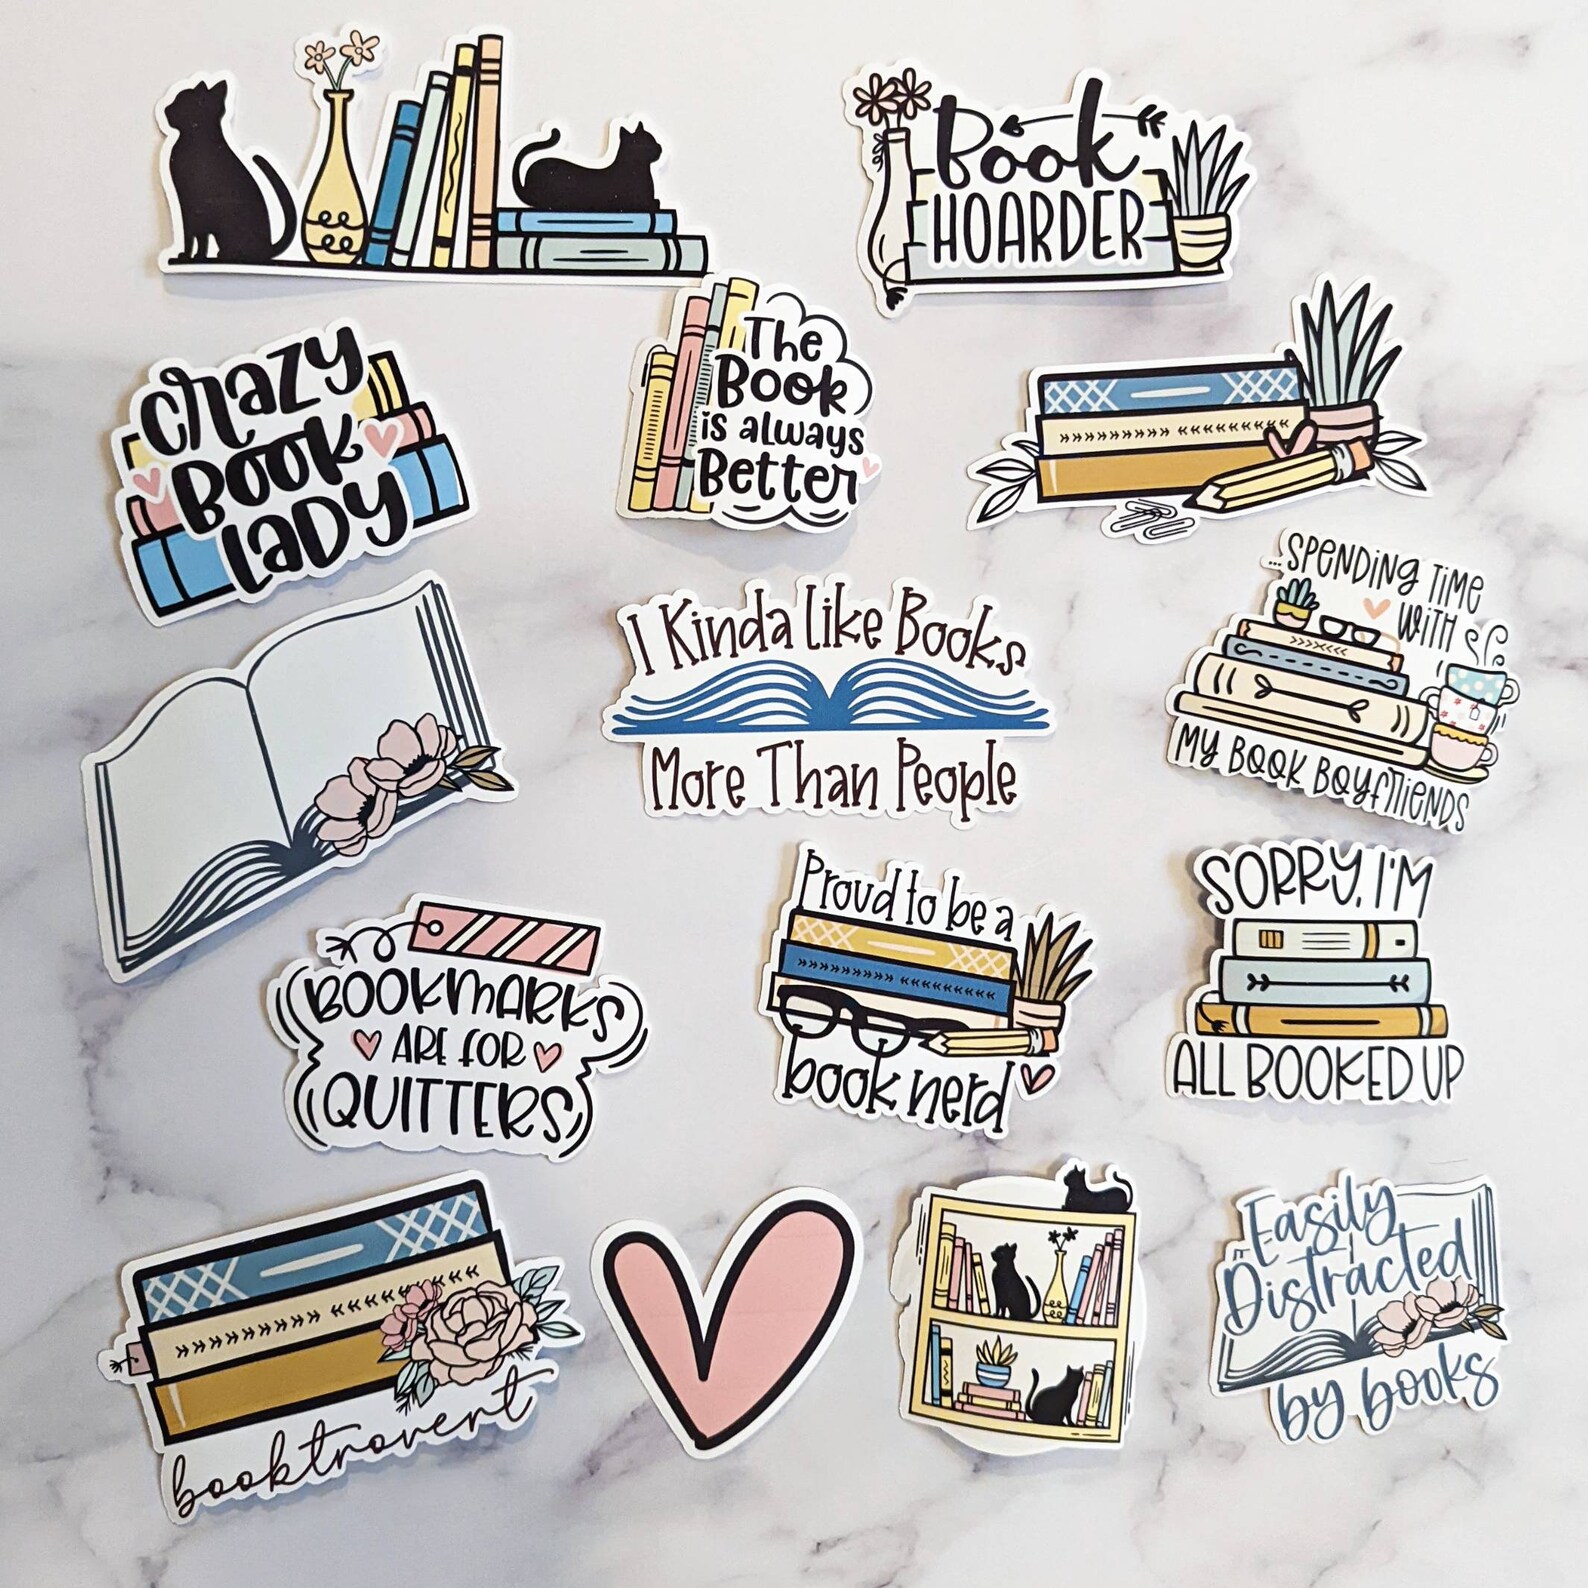 Book
HOARDER
crazy
Book
Lady
The
Book
is always
Better
...SPENDING TIME
WITH
MY BOOK BOYFRIENDS
I Kinda Like Books
More Than People
Proud to be a
book nerd
SORRY, I'M
ALL BOOKED UP
BOOKMARKS
ARE FOR
QUITTERS
booktrovert
Easily
Distracted
by books